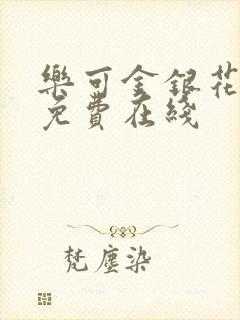 樂可金銀花
免費在綫
梵塵染